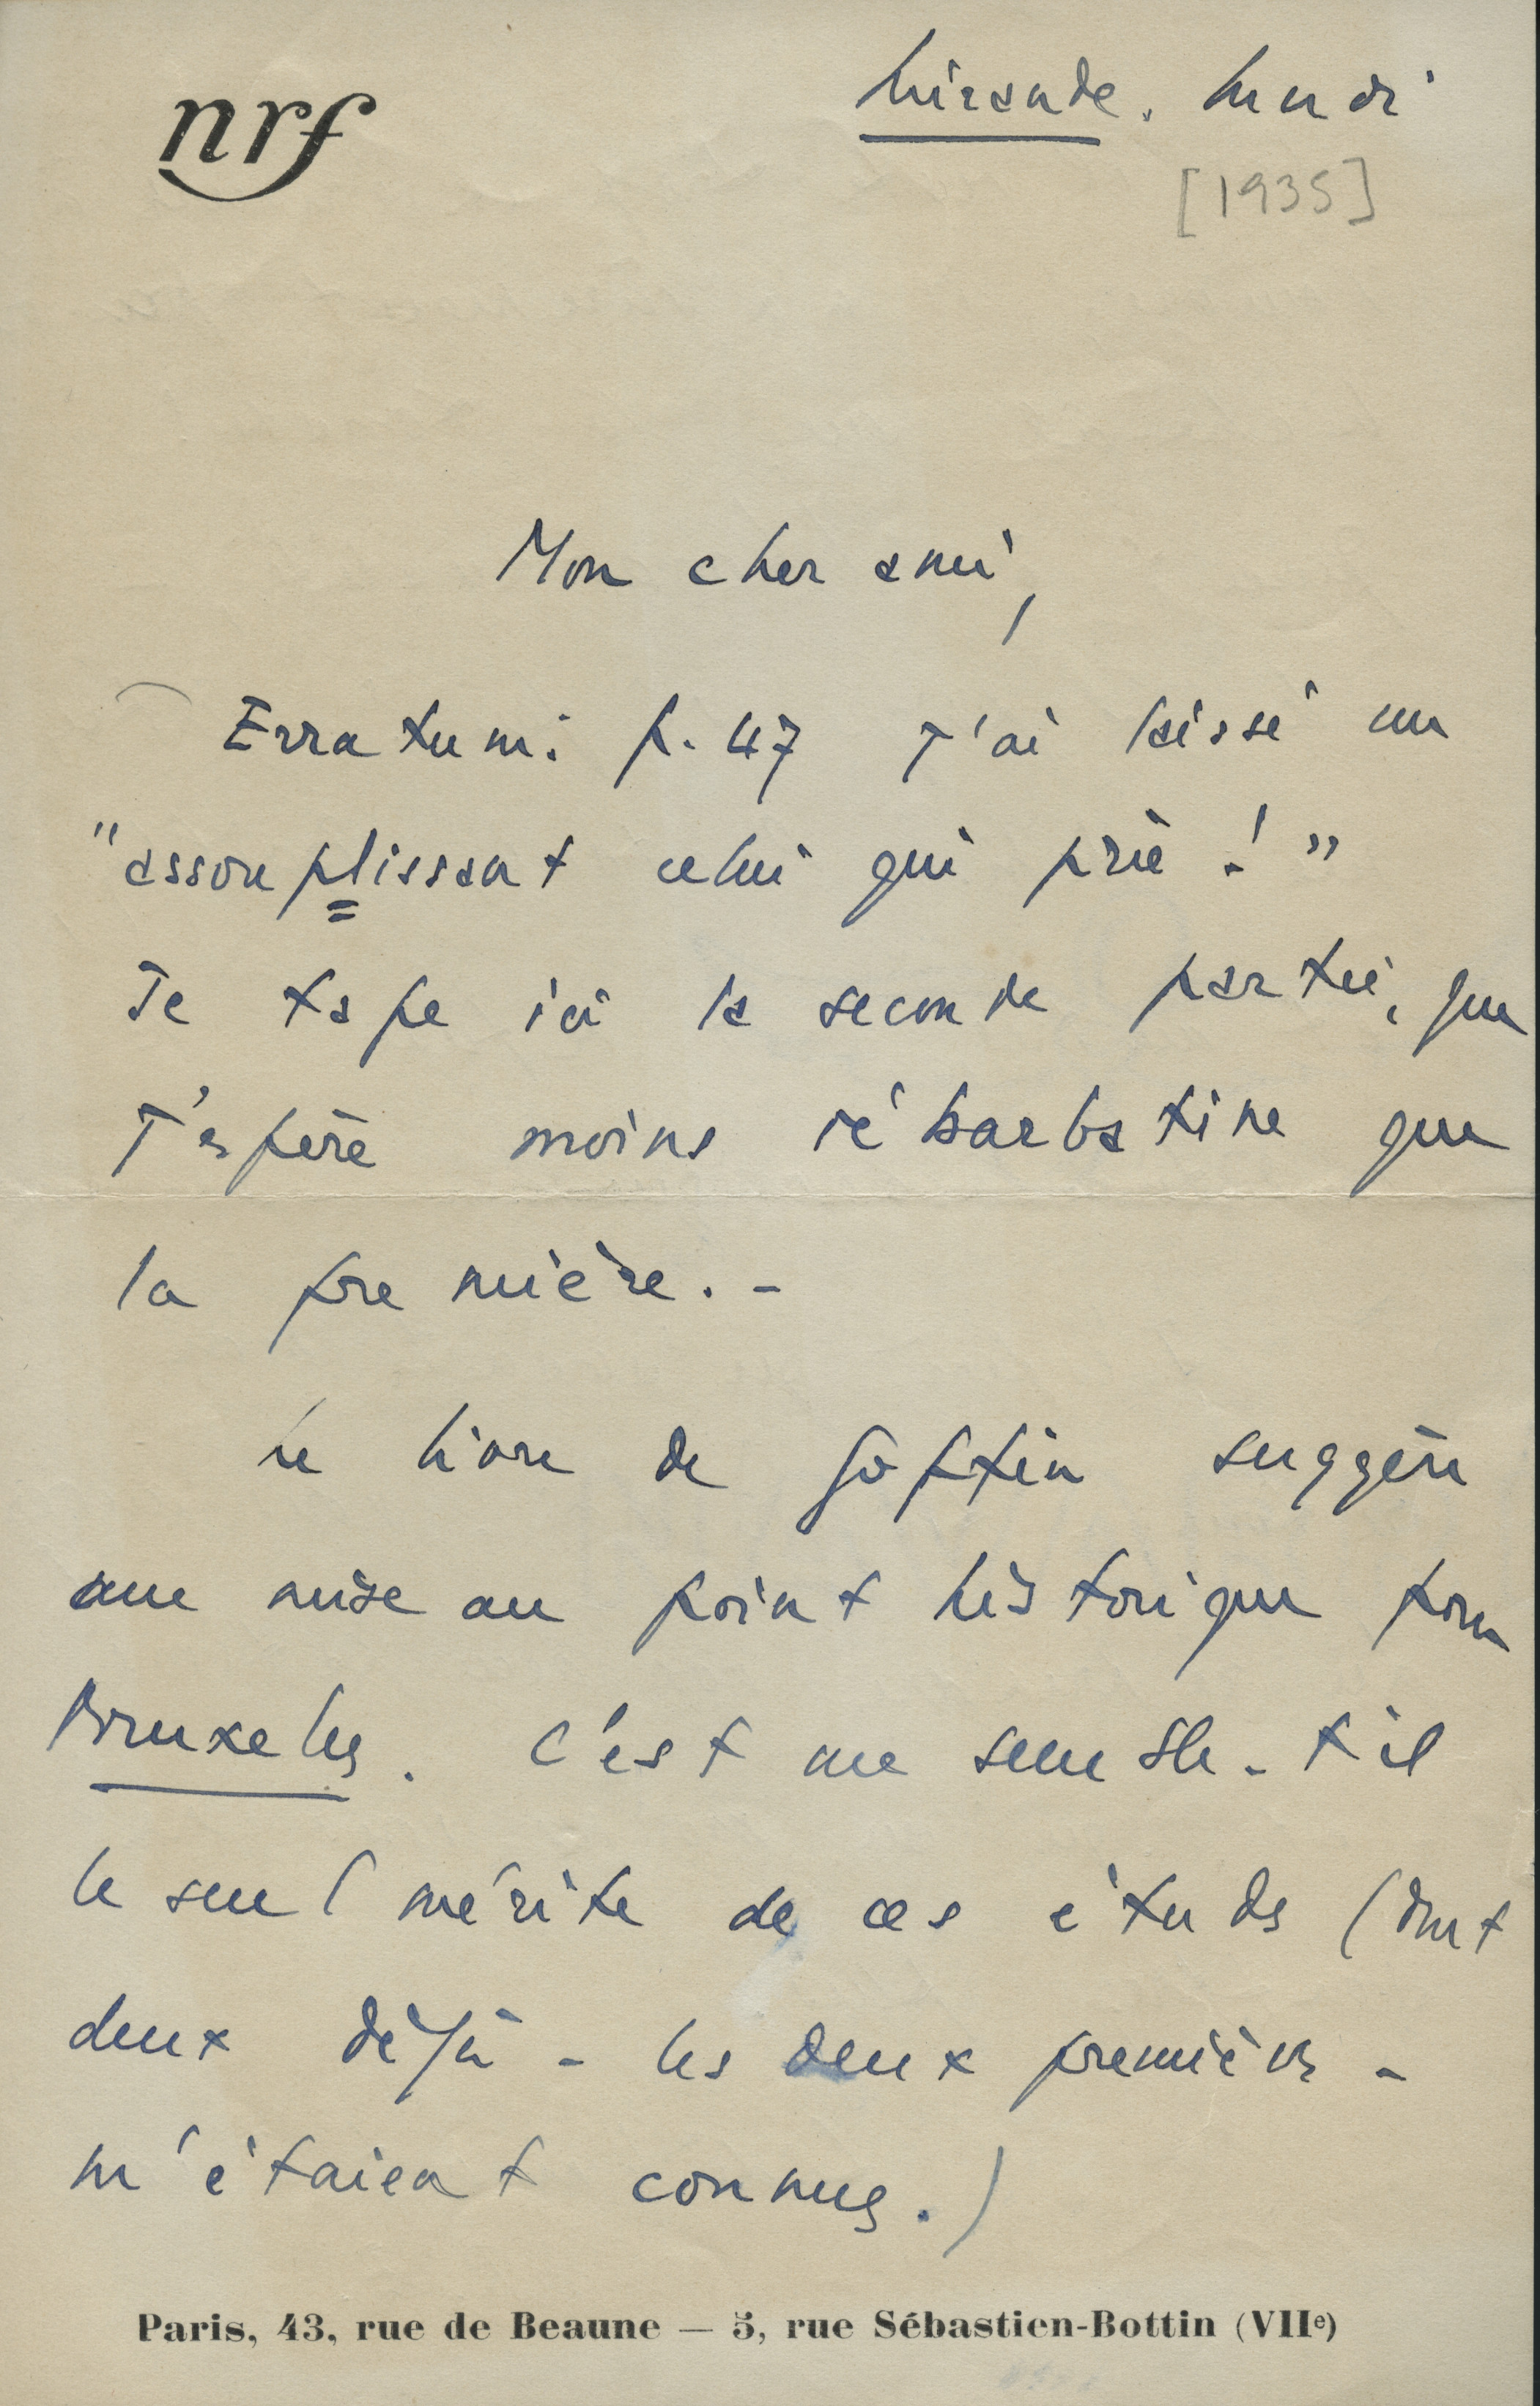 nrf
Mirande. Lundi
[1935]
Mon cher ami,
Erratum: p. 47 J'ai laissé un
"assouplissant celui qui prie !"
Je tape ici la seconde partie, que
J'espère moins rébarbative que
la première. -
Le livre de Goffin suggère
une mise au point historique pour
Bruxelles. C'est me semble-t'il
le seul mérite de ces études (dont
deux déjà - les deux premières -
m'étaient connues.)
Paris, 43, rue de Beaune — 5, rue Sébastien-Bottin (VIIe)